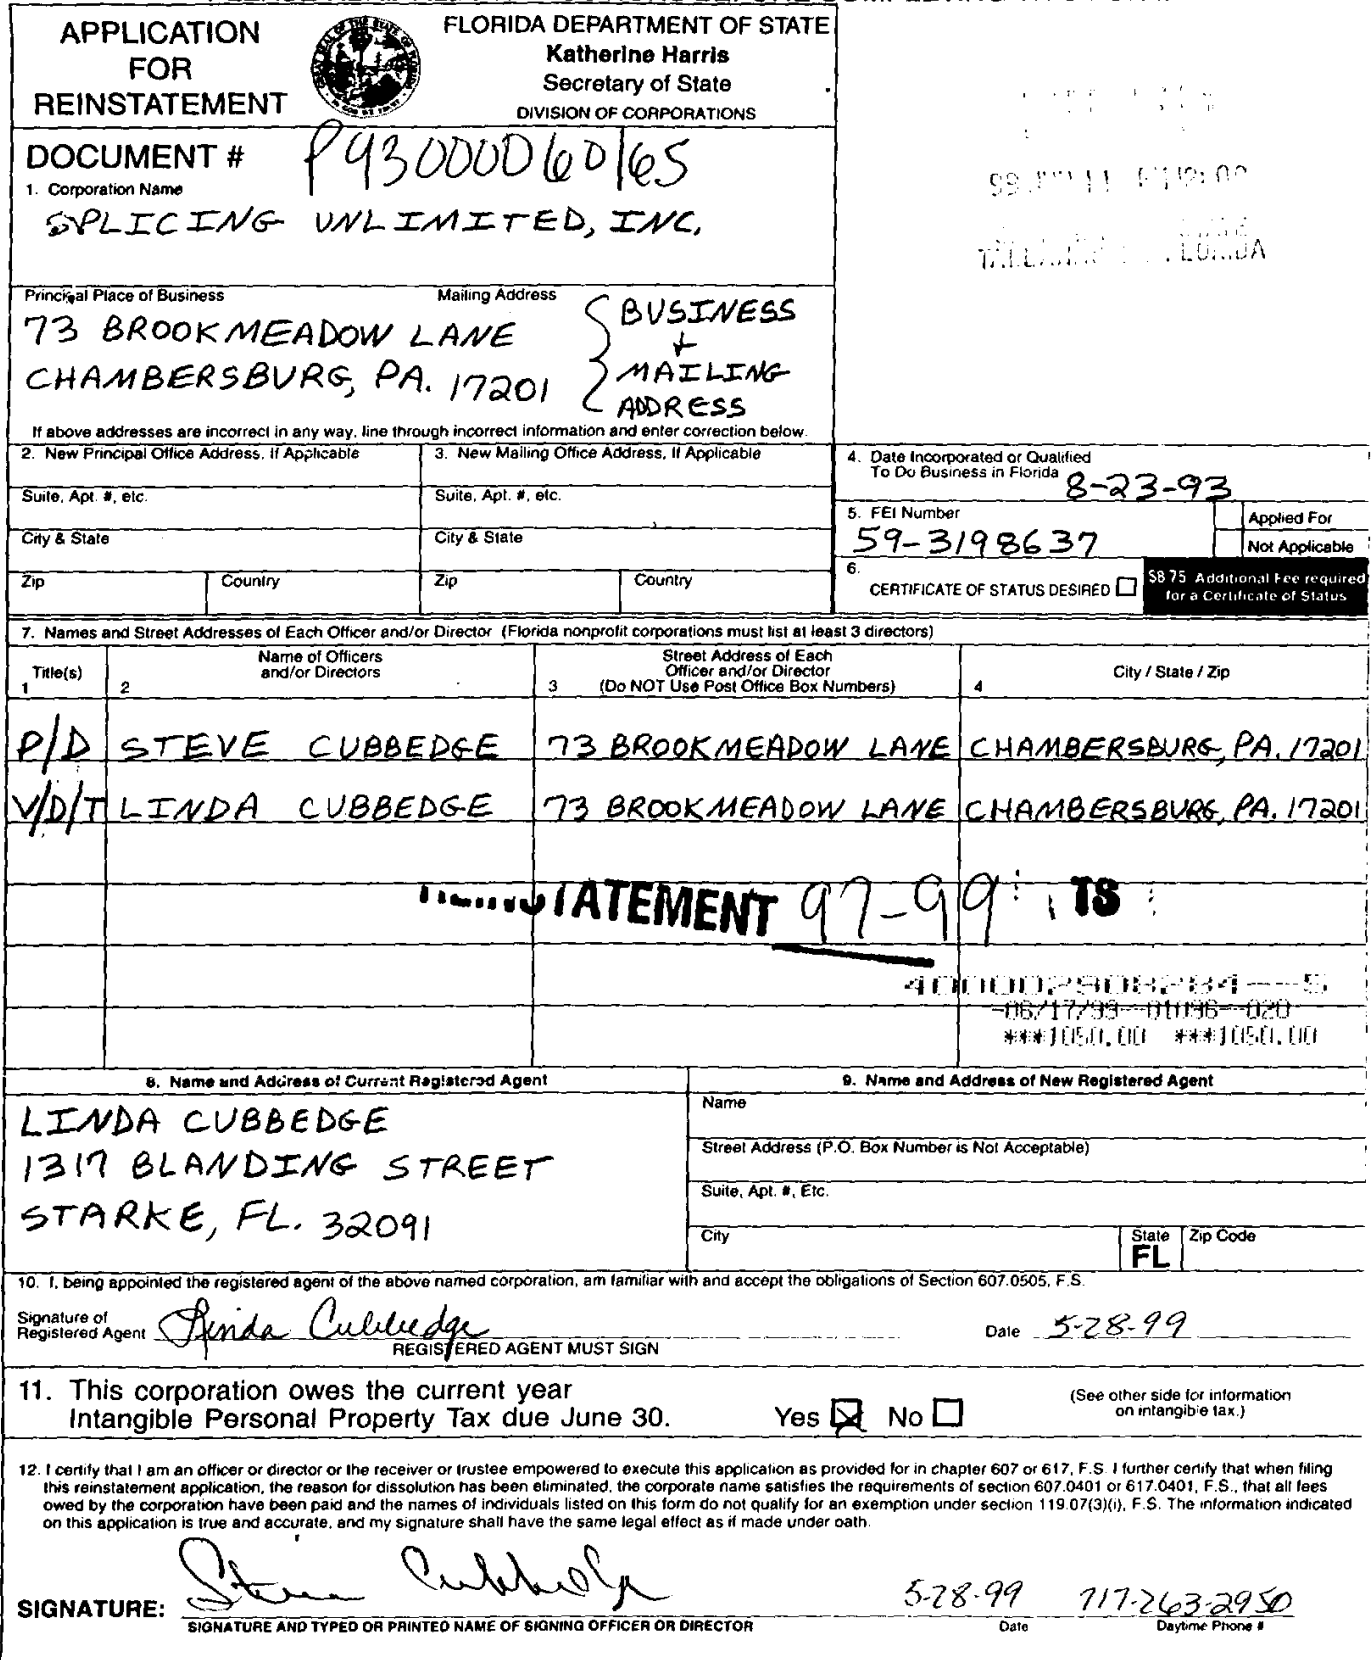 APPLICATION
FOR
REINSTATEMENT
FLORIDA DEPARTMENT OF STATE
Katherine Harris
Secretary of State
DIVISION OF CORPORATIONS
DOCUMENT # P93000060165
1. Corporation Name
SPLICING UNLIMITED, INC.
Principal Place of Business Mailing Address
73 BROOKMEADOW LANE
CHAMBERSBURG, PA. 17201
BUSINESS
+
MAILING
ADDRESS
If above addresses are incorrect in any way, line through incorrect information and enter correction below.
2. New Principal Office Address, If Applicable
3. New Mailing Office Address, If Applicable
4. Date Incorporated or Qualified
To Do Business in Florida 8-23-93
Suite, Apt. #, etc. Suite, Apt. #, etc.
5. FEI Number
59-3198637
Applied For
Not Applicable
City & State City & State
6.
CERTIFICATE OF STATUS DESIRED
$8.75 Additional Fee required
for a Certificate of Status
Zip Country Zip Country
7. Names and Street Addresses of Each Officer and/or Director (Florida nonprofit corporations must list at least 3 directors)
Title(s)
1
Name of Officers
and/or Directors
2
Street Address of Each
Officer and/or Director
3 (Do NOT Use Post Office Box Numbers)
City / State / Zip
4
P/D STEVE CUBBEDGE 73 BROOKMEADOW LANE CHAMBERSBURG, PA. 17201
V/D/T LINDA CUBBEDGE 73 BROOKMEADOW LANE CHAMBERSBURG, PA. 17201
97-99 TS
400002908284--5
-06/17/99--01096--020
***1050.00 ***1050.00
8. Name and Address of Current Registered Agent
LINDA CUBBEDGE
1317 BLANDING STREET
STARKE, FL. 32091
9. Name and Address of New Registered Agent
Name
Street Address (P.O. Box Number is Not Acceptable)
Suite, Apt. #, Etc.
City State Zip Code
FL
10. I, being appointed the registered agent of the above named corporation, am familiar with and accept the obligations of Section 607.0505, F.S.
Signature of
Registered Agent Linda Cubbedge Date 5-28-99
REGISTERED AGENT MUST SIGN
11. This corporation owes the current year
Intangible Personal Property Tax due June 30. Yes No
(See other side for information
on intangible tax.)
12. I certify that I am an officer or director or the receiver or trustee empowered to execute this application as provided for in chapter 607 or 617, F.S. I further certify that when filing
this reinstatement application, the reason for dissolution has been eliminated, the corporate name satisfies the requirements of section 607.0401 or 617.0401, F.S., that all fees
owed by the corporation have been paid and the names of individuals listed on this form do not qualify for an exemption under section 119.07(3)(i), F.S. The information indicated
on this application is true and accurate, and my signature shall have the same legal effect as if made under oath.
SIGNATURE: Steve Cubbedge 5-28-99 717-263-2950
SIGNATURE AND TYPED OR PRINTED NAME OF SIGNING OFFICER OR DIRECTOR Date Daytime Phone #